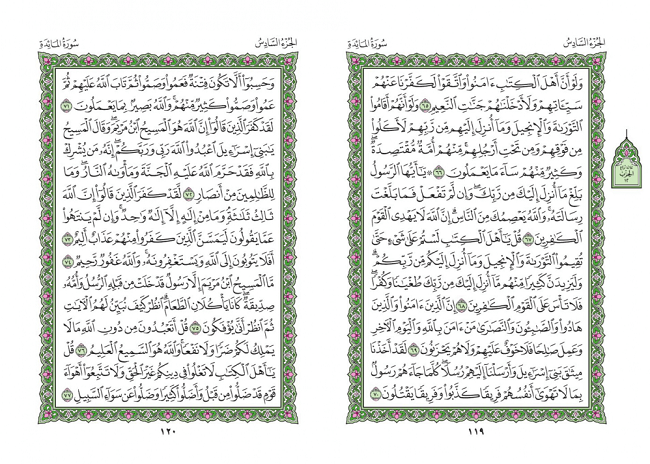 الجُزْءُ السَّادِسُ سُورَةُ المَائِدَةِ
وَلَوْ أَنَّ أَهْلَ ٱلْكِتَٰبِ ءَامَنُوا۟ وَٱتَّقَوْا۟ لَكَفَّرْنَا عَنْهُمْ
سَيِّـَٔاتِهِمْ وَلَأَدْخَلْنَٰهُمْ جَنَّٰتِ ٱلنَّعِيمِ ٦٥ وَلَوْ أَنَّهُمْ أَقَامُوا۟
ٱلتَّوْرَىٰةَ وَٱلْإِنجِيلَ وَمَآ أُنزِلَ إِلَيْهِم مِّن رَّبِّهِمْ لَأَكَلُوا۟
مِن فَوْقِهِمْ وَمِن تَحْتِ أَرْجُلِهِم ۚ مِّنْهُمْ أُمَّةٌ مُّقْتَصِدَةٌ ۖ
وَكَثِيرٌ مِّنْهُمْ سَآءَ مَا يَعْمَلُونَ ٦٦ ۞ يَٰٓأَيُّهَا ٱلرَّسُولُ
بَلِّغْ مَآ أُنزِلَ إِلَيْكَ مِن رَّبِّكَ ۖ وَإِن لَّمْ تَفْعَلْ فَمَا بَلَّغْتَ
رِسَالَتَهُۥ ۚ وَٱللَّهُ يَعْصِمُكَ مِنَ ٱلنَّاسِ ۗ إِنَّ ٱللَّهَ لَا يَهْدِى ٱلْقَوْمَ
ٱلْكَٰفِرِينَ ٦٧ قُلْ يَٰٓأَهْلَ ٱلْكِتَٰبِ لَسْتُمْ عَلَىٰ شَىْءٍ حَتَّىٰ
تُقِيمُوا۟ ٱلتَّوْرَىٰةَ وَٱلْإِنجِيلَ وَمَآ أُنزِلَ إِلَيْكُم مِّن رَّبِّكُمْ ۗ
وَلَيَزِيدَنَّ كَثِيرًا مِّنْهُم مَّآ أُنزِلَ إِلَيْكَ مِن رَّبِّكَ طُغْيَٰنًا وَكُفْرًا ۖ
فَلَا تَأْسَ عَلَى ٱلْقَوْمِ ٱلْكَٰفِرِينَ ٦٨ إِنَّ ٱلَّذِينَ ءَامَنُوا۟ وَٱلَّذِينَ
هَادُوا۟ وَٱلصَّٰبِـُٔونَ وَٱلنَّصَٰرَىٰ مَنْ ءَامَنَ بِٱللَّهِ وَٱلْيَوْمِ ٱلْءَاخِرِ
وَعَمِلَ صَٰلِحًا فَلَا خَوْفٌ عَلَيْهِمْ وَلَا هُمْ يَحْزَنُونَ ٦٩ لَقَدْ أَخَذْنَا
مِيثَٰقَ بَنِىٓ إِسْرَٰٓءِيلَ وَأَرْسَلْنَآ إِلَيْهِمْ رُسُلًا ۖ كُلَّمَا جَآءَهُمْ رَسُولٌۢ
بِمَا لَا تَهْوَىٰٓ أَنفُسُهُمْ فَرِيقًا كَذَّبُوا۟ وَفَرِيقًا يَقْتُلُونَ ٧٠
١١٩
الجُزْءُ السَّادِسُ سُورَةُ المَائِدَةِ
وَحَسِبُوٓا۟ أَلَّا تَكُونَ فِتْنَةٌ فَعَمُوا۟ وَصَمُّوا۟ ثُمَّ تَابَ ٱللَّهُ عَلَيْهِمْ ثُمَّ
عَمُوا۟ وَصَمُّوا۟ كَثِيرٌ مِّنْهُمْ ۚ وَٱللَّهُ بَصِيرٌۢ بِمَا يَعْمَلُونَ ٧١
لَقَدْ كَفَرَ ٱلَّذِينَ قَالُوٓا۟ إِنَّ ٱللَّهَ هُوَ ٱلْمَسِيحُ ٱبْنُ مَرْيَمَ ۖ وَقَالَ ٱلْمَسِيحُ
يَٰبَنِىٓ إِسْرَٰٓءِيلَ ٱعْبُدُوا۟ ٱللَّهَ رَبِّى وَرَبَّكُمْ ۖ إِنَّهُۥ مَن يُشْرِكْ
بِٱللَّهِ فَقَدْ حَرَّمَ ٱللَّهُ عَلَيْهِ ٱلْجَنَّةَ وَمَأْوَىٰهُ ٱلنَّارُ ۖ وَمَا
لِلظَّٰلِمِينَ مِنْ أَنصَارٍ ٧٢ لَّقَدْ كَفَرَ ٱلَّذِينَ قَالُوٓا۟ إِنَّ ٱللَّهَ
ثَالِثُ ثَلَٰثَةٍ ۘ وَمَا مِنْ إِلَٰهٍ إِلَّآ إِلَٰهٌ وَٰحِدٌ ۚ وَإِن لَّمْ يَنتَهُوا۟
عَمَّا يَقُولُونَ لَيَمَسَّنَّ ٱلَّذِينَ كَفَرُوا۟ مِنْهُمْ عَذَابٌ أَلِيمٌ ٧٣
أَفَلَا يَتُوبُونَ إِلَى ٱللَّهِ وَيَسْتَغْفِرُونَهُۥ ۚ وَٱللَّهُ غَفُورٌ رَّحِيمٌ ٧٤
مَّا ٱلْمَسِيحُ ٱبْنُ مَرْيَمَ إِلَّا رَسُولٌ قَدْ خَلَتْ مِن قَبْلِهِ ٱلرُّسُلُ وَأُمُّهُۥ
صِدِّيقَةٌ ۖ كَانَا يَأْكُلَانِ ٱلطَّعَامَ ۗ ٱنظُرْ كَيْفَ نُبَيِّنُ لَهُمُ ٱلْءَايَٰتِ
ثُمَّ ٱنظُرْ أَنَّىٰ يُؤْفَكُونَ ٧٥ قُلْ أَتَعْبُدُونَ مِن دُونِ ٱللَّهِ مَا لَا
يَمْلِكُ لَكُمْ ضَرًّا وَلَا نَفْعًا ۚ وَٱللَّهُ هُوَ ٱلسَّمِيعُ ٱلْعَلِيمُ ٧٦ قُلْ
يَٰٓأَهْلَ ٱلْكِتَٰبِ لَا تَغْلُوا۟ فِى دِينِكُمْ غَيْرَ ٱلْحَقِّ وَلَا تَتَّبِعُوٓا۟ أَهْوَآءَ
قَوْمٍ قَدْ ضَلُّوا۟ مِن قَبْلُ وَأَضَلُّوا۟ كَثِيرًا وَضَلُّوا۟ عَن سَوَآءِ ٱلسَّبِيلِ ٧٧
١٢٠